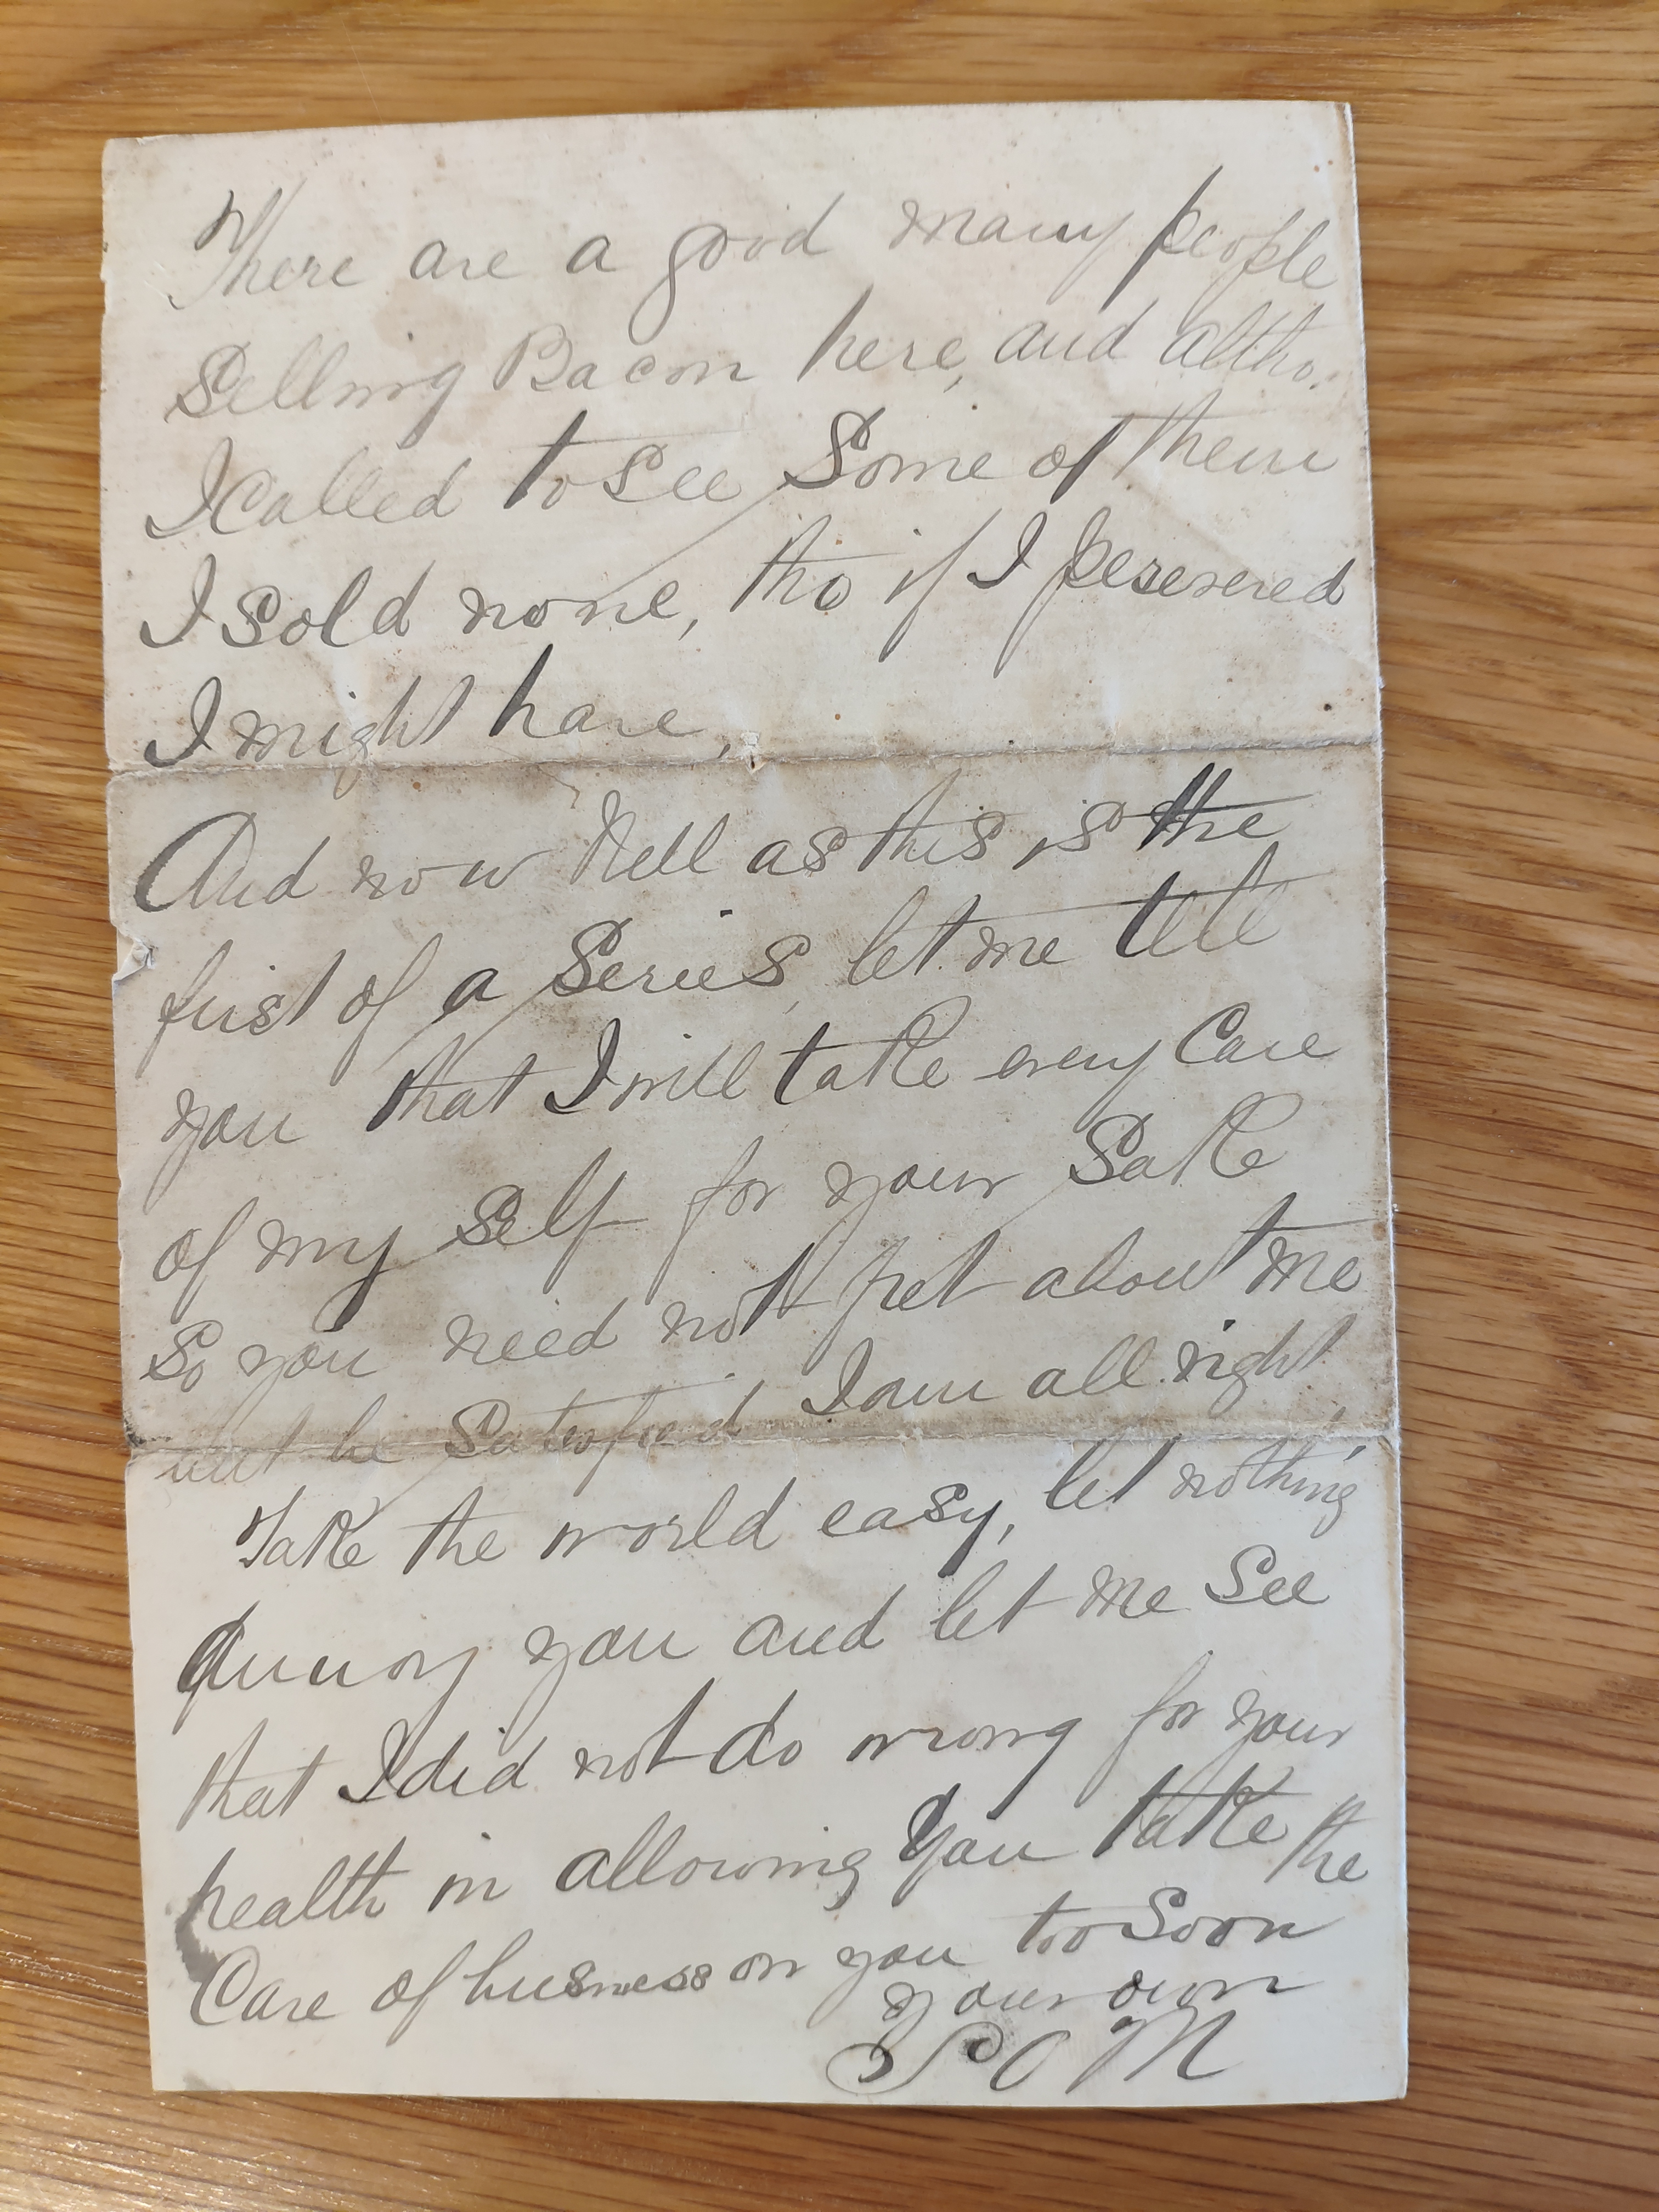 There are a good many people
Selling Bacon here, and altho.
I Called to See Some of them
I Sold none, tho if I persevered
I might have,
And now Nell as this is the
first of a Series, let me tell
you that I will take every Care
of my Self for your Sake
So you need not fret about me
but be Satesfied I am all right,
Take the world easy, let nothing
Annoy you and let me See
that I did not do wrong for your
health in allowing You take the
Care of business on you too Soon
your own
P O M